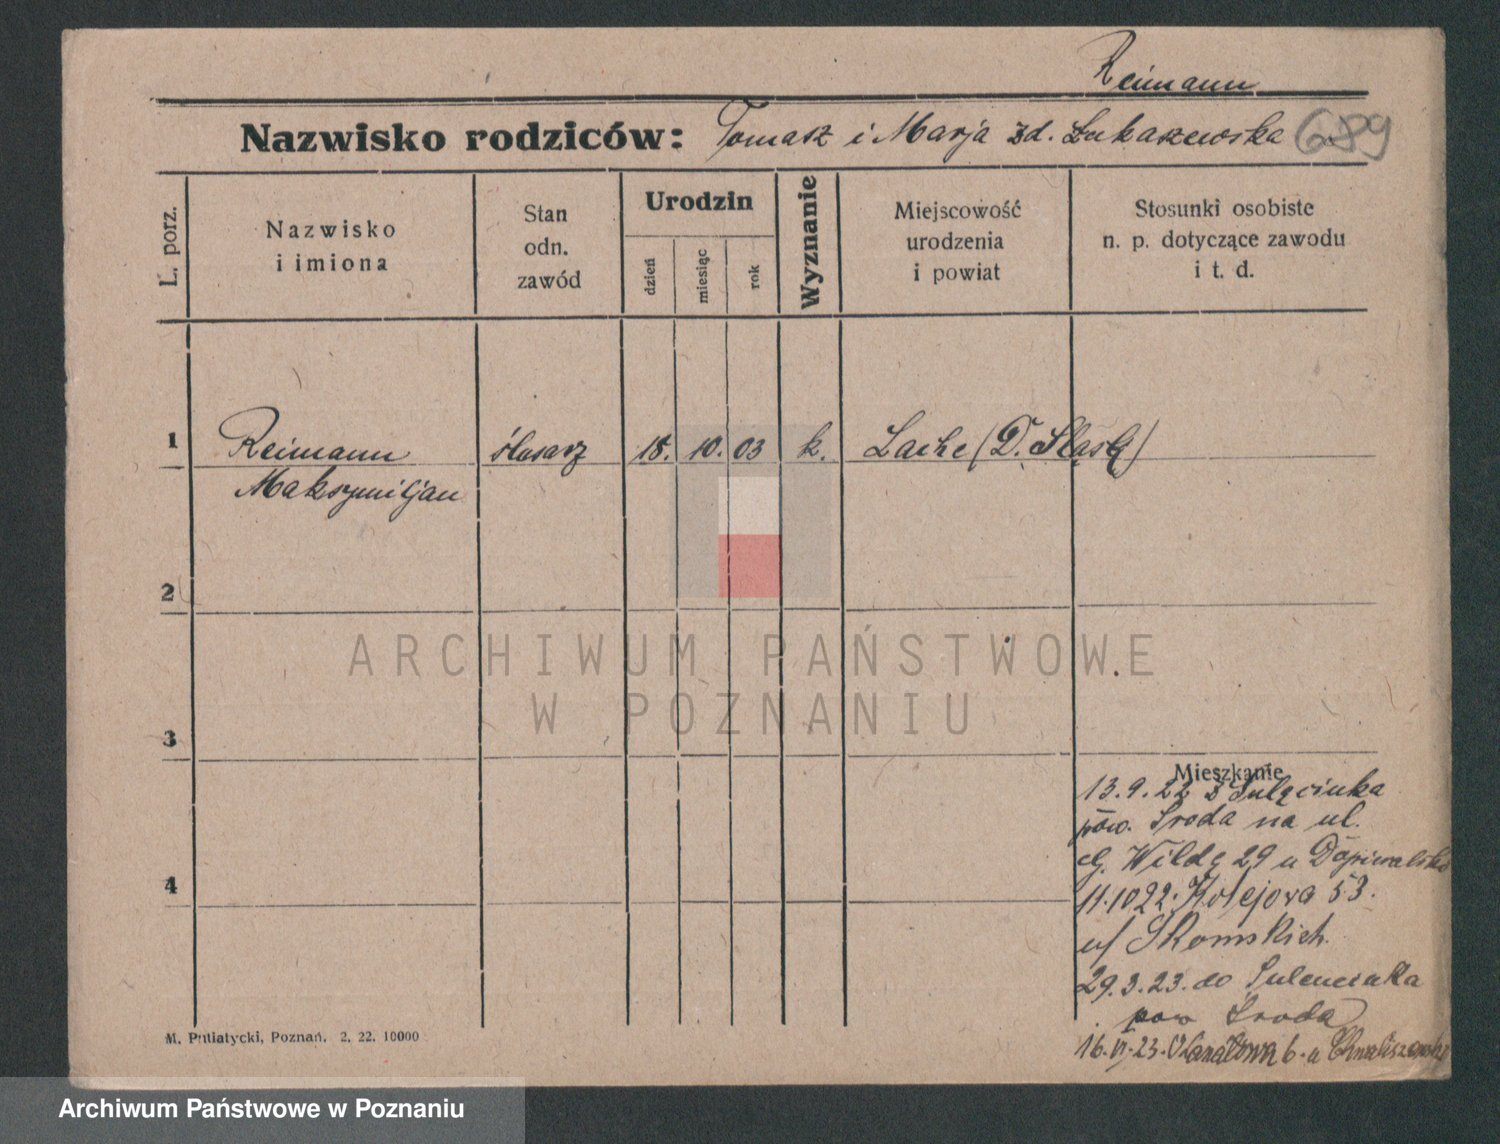 Reimann
Nazwisko rodziców: Tomasz i Marja zd. Łukaszewska 689
L. porz.
Nazwisko i imiona
Stan odn. zawód
Urodzin
dzień
miesiąc
rok
Wyznanie
Miejscowość urodzenia i powiat
Stosunki osobiste n. p. dotyczące zawodu i t. d.
1 Reimann ślusarz 18. 10. 03 k. (D. Śląsk)
Maksymiljan
2
3
4
Mieszkanie
13.9.22 z Sulęcinka
pow. Środa na ul.
Wildę 29 u
11.10 22. Kolejowa 53.
u/
29.3.23. do Sulencinka
pow Środa
16.VI.23. 6. u
M. Putiatycki, Poznań. 2, 22. 10000
ARCHIWUM PAŃSTWOWE
W POZNANIU
Archiwum Państwowe w Poznaniu